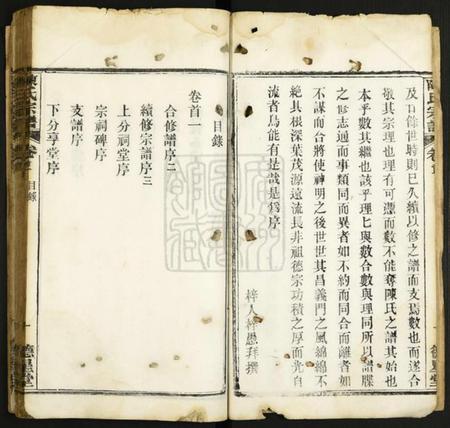 陳氏宗譜 卷首
及百餘世時則已久續以修之譜而支焉數也而遂合
敬其宗理也理有可憑而數不能奪陳氏之譜其始也
本乎數其繼也該乎理匕與數合數與理同所以譜牒
之修志通而事類同而異者如不約而同合而離者如
不謀而合將使神明之後世世其昌義門之風綿綿不
絕其根深葉茂源遠流長非祖德宗功積之厚而光自
流者烏能有是哉是爲序
梓人 拜撰
德星堂
目錄
卷首一
合修譜序二
續修宗譜序三
上分祠堂序
宗祠碑序
支譜序
下分享堂序
陳氏宗譜 卷首 目錄
一 德星堂